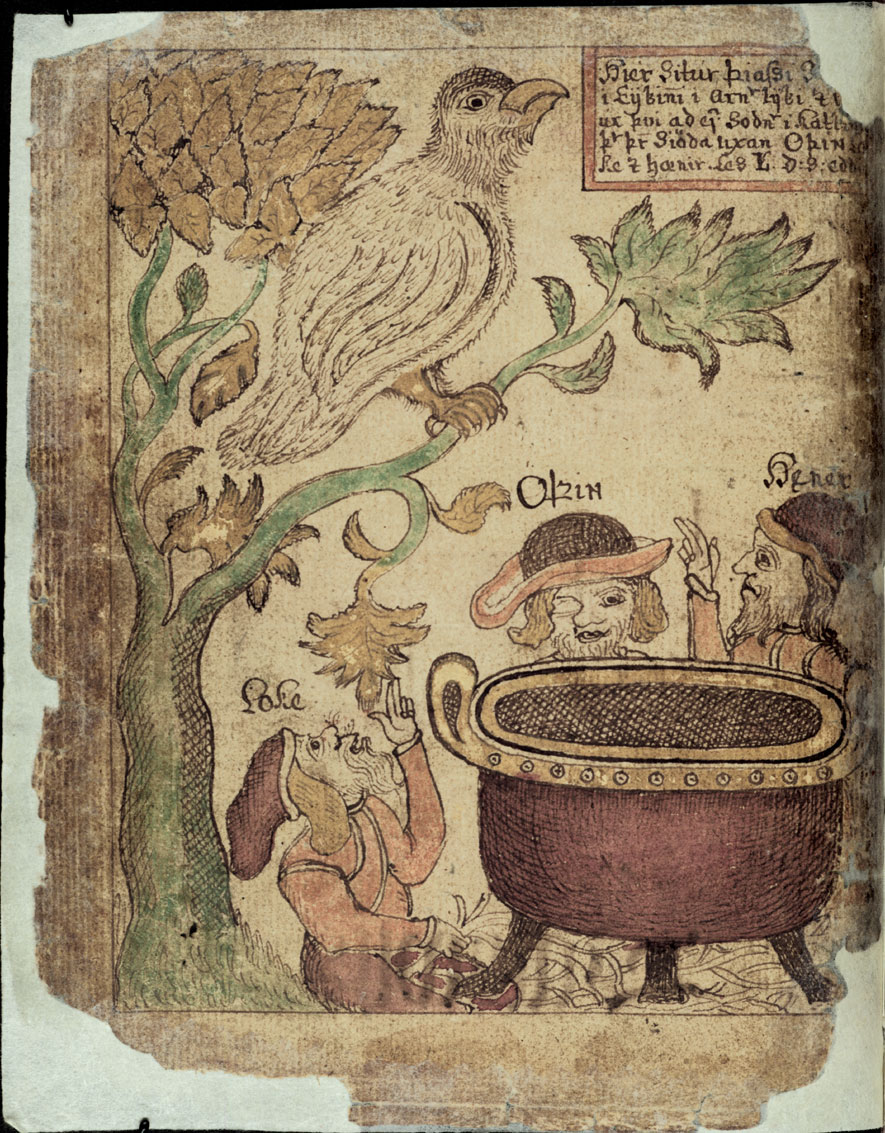 Hier Situr þiassi
i Eijkinni i Arn lijki
ur þvi ad ej Sodn i Katl
þr Sióda uxan Oþin
ke & hœnir. les L: d: s: edd
Oþin
Hener
Loke